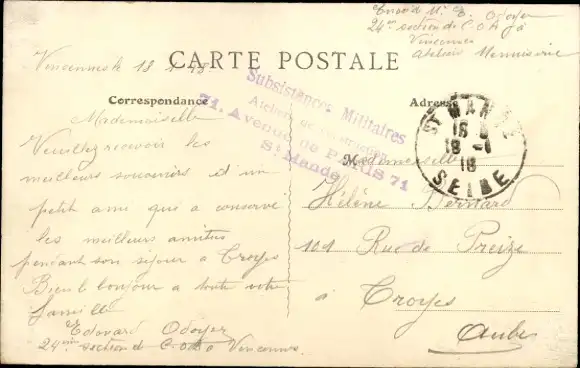 Envoi M. E. Odoyer
24me section de C.O.A. à
Vincennes
atelier Menuiserie
CARTE POSTALE
Vincennes le 18 1 18
Correspondance
Adresse
Subsistances Militaires
Atelier de
71, Avenue de PARIS 71
St Mandé
ST MANDÉ
16
18 -1
18
SEINE
Mademoiselle
Veuillez recevoir les
meilleurs souvenirs d un
petit ami que a conservé
les meilleurs amitiés
pendant son séjour a Troyes
Bien le bonjour a toute votre
famille
Edouard Odoyer
24me section d C.O.A Vincennes
Mademoiselle
Hélène Bernard
101 Rue de Preize
à Troyes
Aube